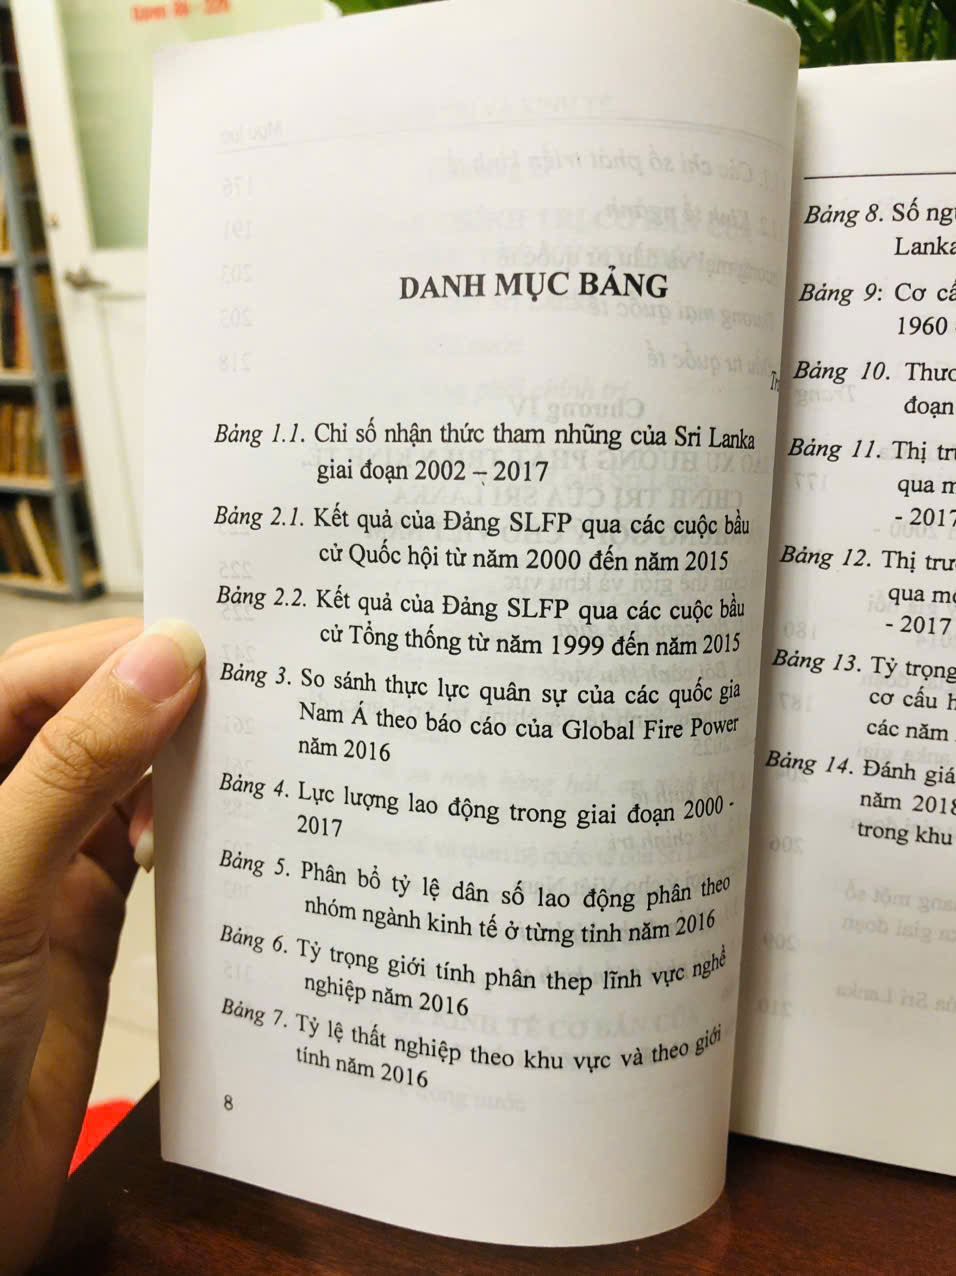 DANH MỤC BẢNG
Bảng 1.1. Chỉ số nhận thức tham nhũng của Sri Lanka
giai đoạn 2002 – 2017
Bảng 2.1. Kết quả của Đảng SLFP qua các cuộc bầu
cử Quốc hội từ năm 2000 đến năm 2015
Bảng 2.2. Kết quả của Đảng SLFP qua các cuộc bầu
cử Tổng thống từ năm 1999 đến năm 2015
Bảng 3. So sánh thực lực quân sự của các quốc gia
Nam Á theo báo cáo của Global Fire Power
năm 2016
Bảng 4. Lực lượng lao động trong giai đoạn 2000 -
2017
Bảng 5. Phân bổ tỷ lệ dân số lao động phân theo
nhóm ngành kinh tế ở từng tỉnh năm 2016
Bảng 6. Tỷ trọng giới tính phân thep lĩnh vực nghề
nghiệp năm 2016
Bảng 7. Tỷ lệ thất nghiệp theo khu vực và theo giới
tính năm 2016
8
Bảng 8. Số
Lanka
Bảng 9: Cơ
1960
Bảng 10.
đoạn
Bảng 11. Thị
qua
- 2017
Bảng 12. Thị
qua
- 2017
Bảng 13. Tỷ trọng
cơ cấu
các năm
Bảng 14. Đánh giá
năm 2018
trong khu